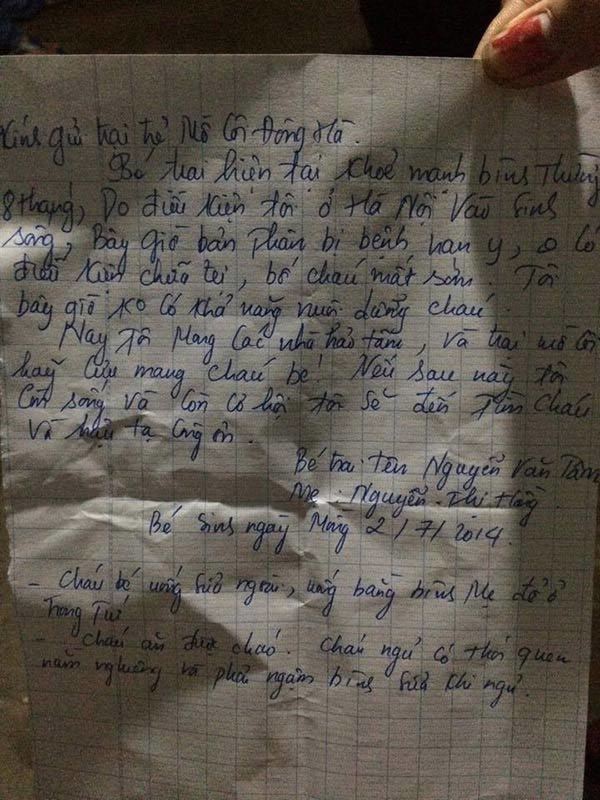 Kính gửi trại trẻ Mồ Côi Đông Hà.
Bé trai hiện tại khoẻ mạnh bình thường
8 tháng, Do điều kiện tôi ở Hà Nội Vào Sinh
sống, Bây giờ bản thân bị bệnh nan y, o có
điều kiện chữa trị, bố cháu mất sớm. Tôi
bây giờ ko có khả năng nuôi dưỡng cháu.
Nay Tôi Mong Các nhà hảo tâm, và trại mồ côi
hãy Cưu mang cháu bé! Nếu sau này tôi
Còn sống và Còn cơ hội tôi sẽ đến Tìm Cháu
Và hậu tạ Công ơn.
Bé trai Tên Nguyễn Văn Tâm
Mẹ: Nguyễn Thị Hồng
Bé Sinh ngày Mùng 2/7/2014.
- Cháu bé uống sữa ngoài, uống bằng bình Mẹ để ở
Trong Túi
- Cháu ăn được cháo. Cháu ngủ có thói quen
nằm nghiêng và phải ngậm bình sữa khi ngủ.